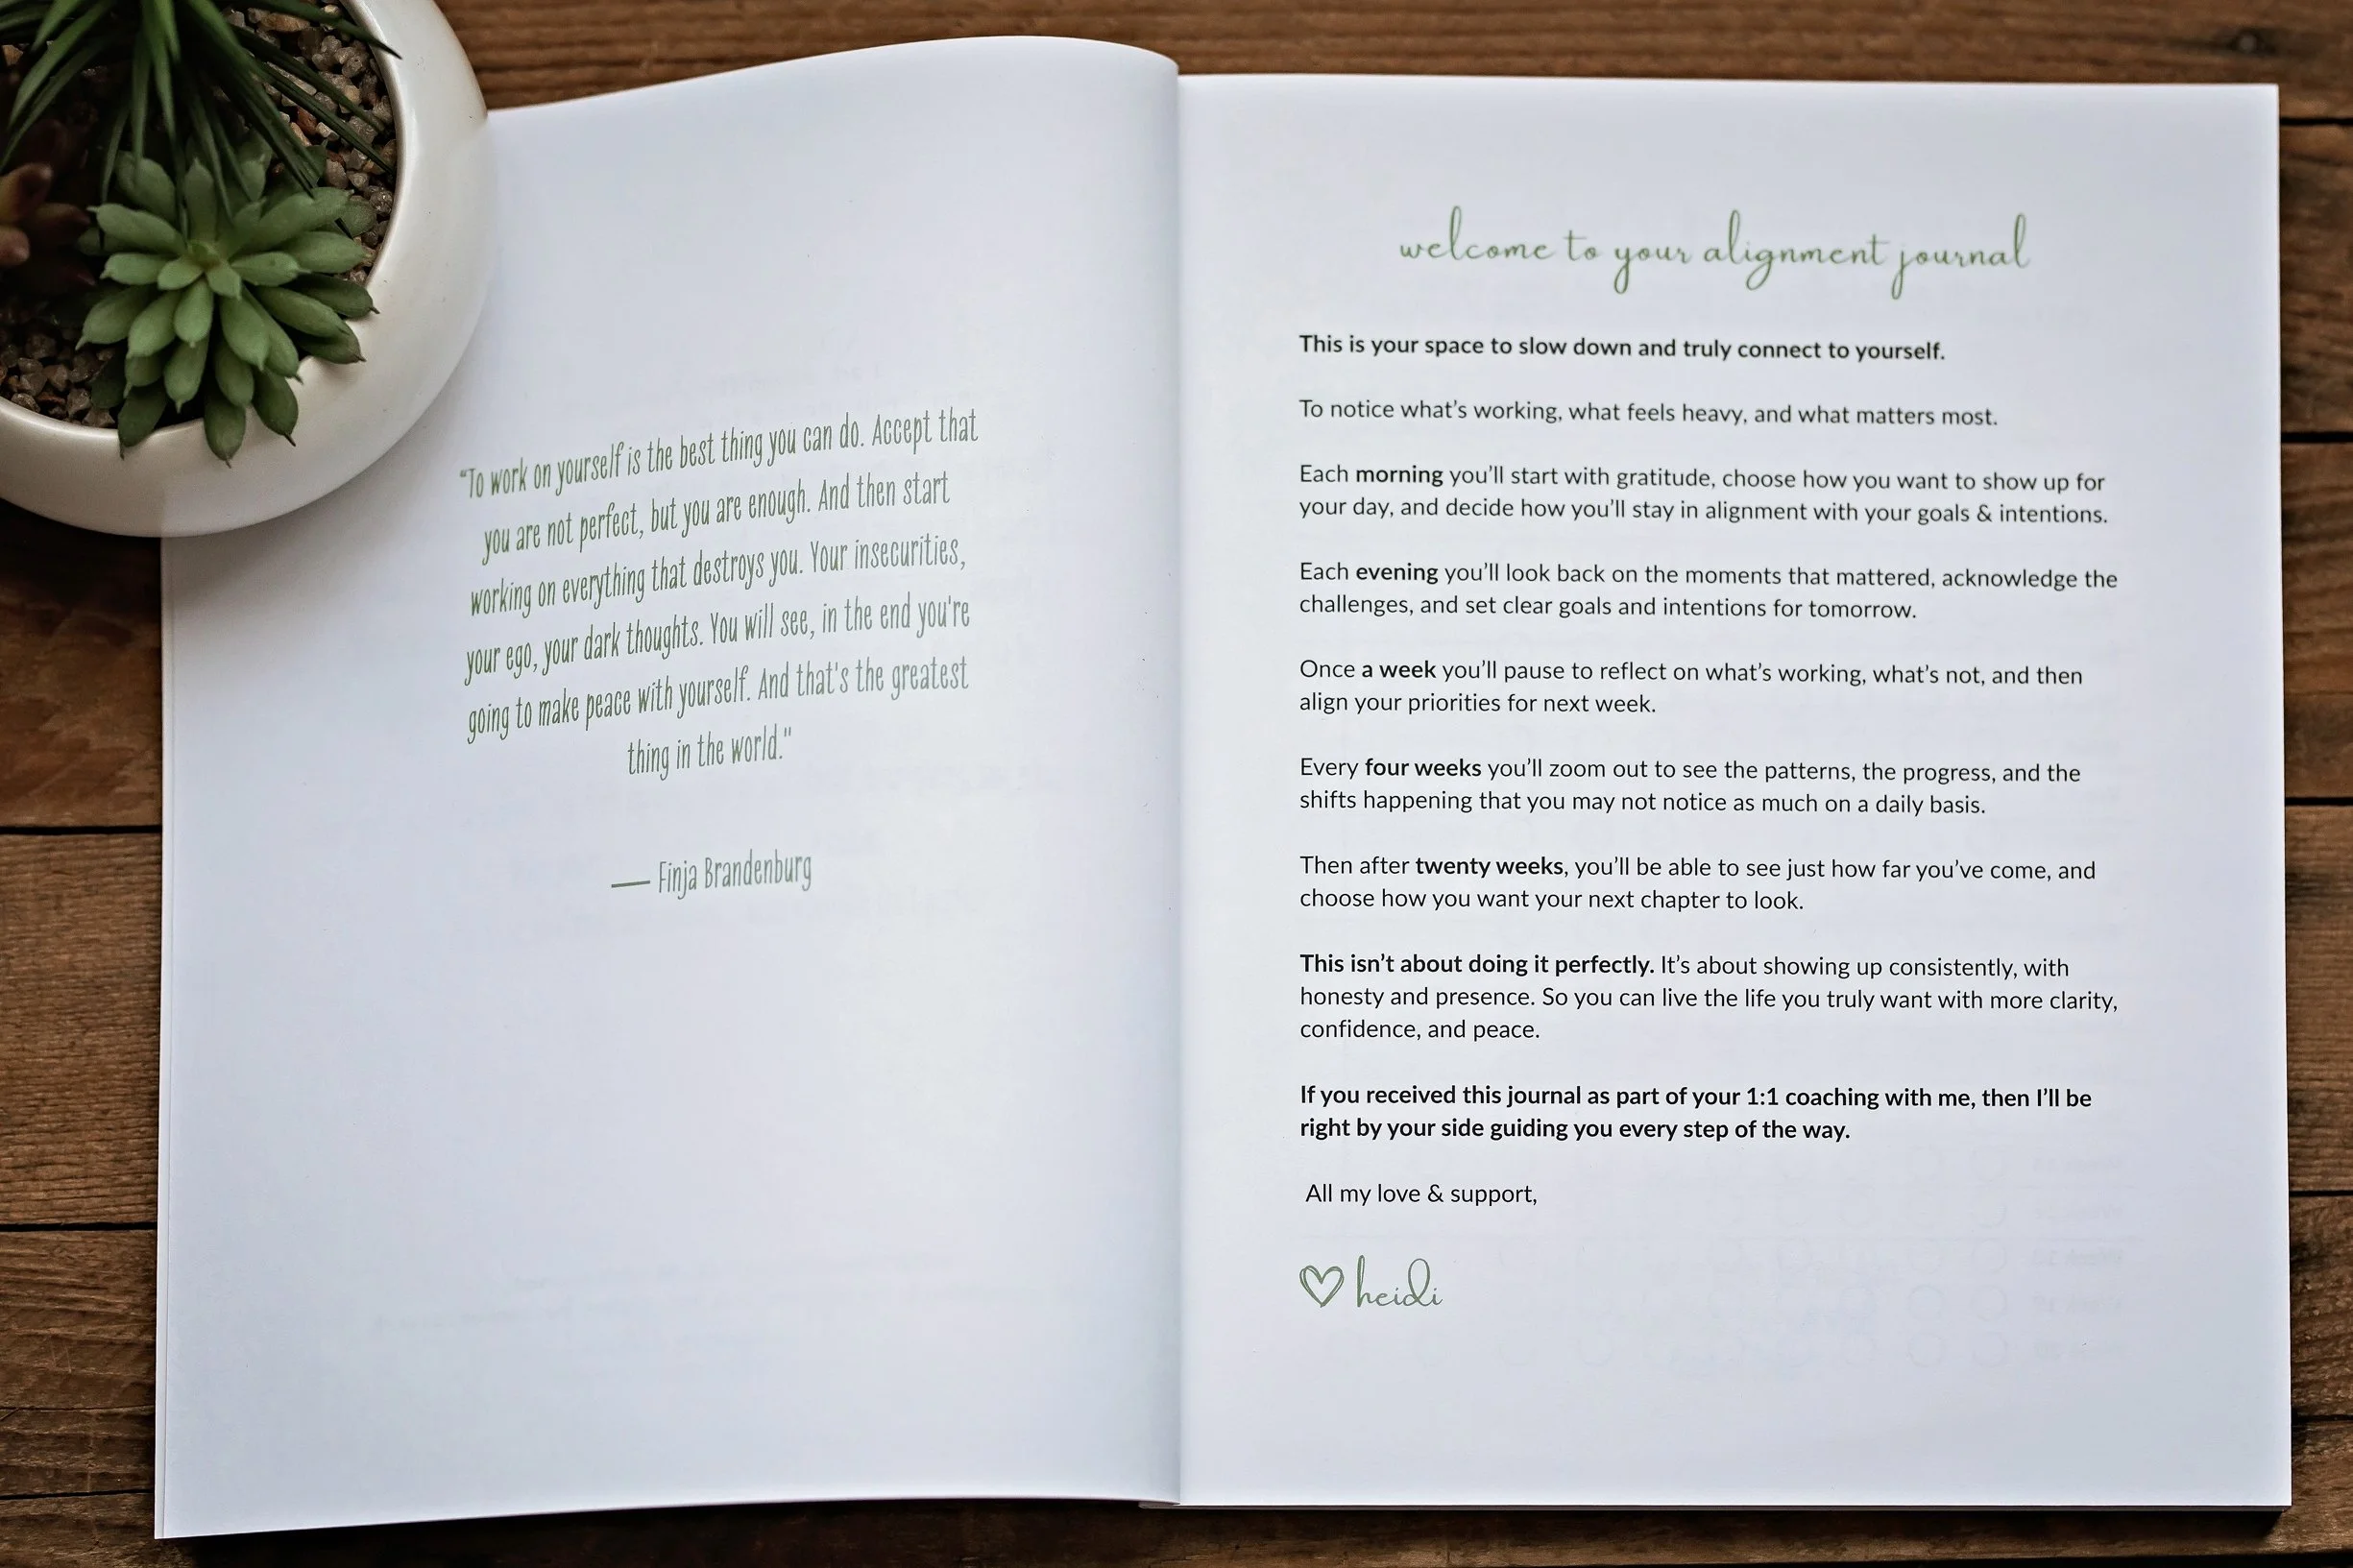 “To work on yourself is the best thing you can do. Accept that
you are not perfect, but you are enough. And then start
working on everything that destroys you. Your insecurities,
your ego, your dark thoughts. You will see, in the end you're
going to make peace with yourself. And that's the greatest
thing in the world."
— Finja Brandenburg
welcome to your alignment journal
This is your space to slow down and truly connect to yourself.
To notice what’s working, what feels heavy, and what matters most.
Each morning you’ll start with gratitude, choose how you want to show up for
your day, and decide how you’ll stay in alignment with your goals & intentions.
Each evening you’ll look back on the moments that mattered, acknowledge the
challenges, and set clear goals and intentions for tomorrow.
Once a week you’ll pause to reflect on what’s working, what’s not, and then
align your priorities for next week.
Every four weeks you’ll zoom out to see the patterns, the progress, and the
shifts happening that you may not notice as much on a daily basis.
Then after twenty weeks, you’ll be able to see just how far you’ve come, and
choose how you want your next chapter to look.
This isn’t about doing it perfectly. It’s about showing up consistently, with
honesty and presence. So you can live the life you truly want with more clarity,
confidence, and peace.
If you received this journal as part of your 1:1 coaching with me, then I’ll be
right by your side guiding you every step of the way.
All my love & support,
heidi